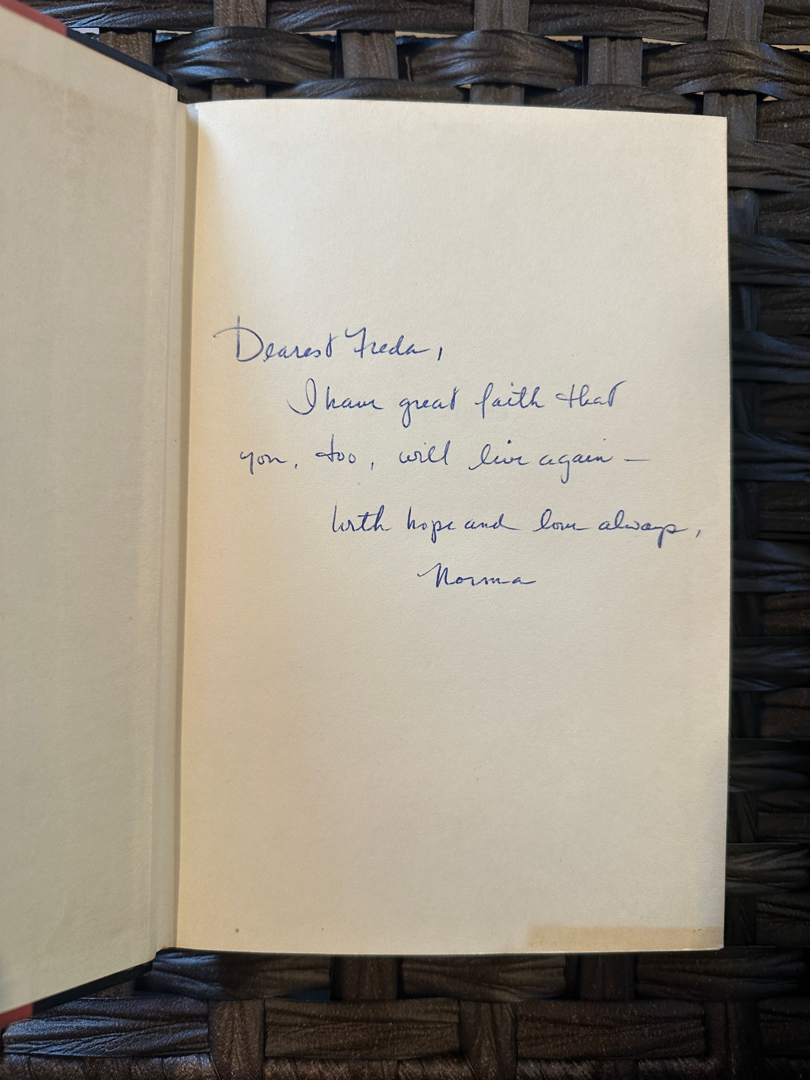 Dearest Freda,
I have great faith that
you, too, will live again —
With hope and love always,
Norma